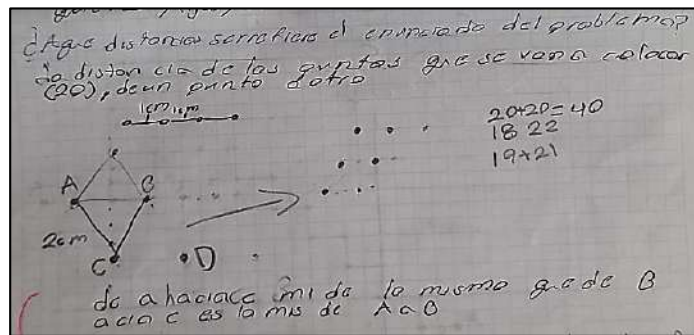 ¿Aque distancias serrefiere el enunciado del problema?
La distancia de los puntos que se van a colocar
(20), de un punto a otro
1cm 1cm
20+20=40
18 22
19+21
A
B
2cm
C
D
de a haciacc mide lo mismo que de B
acia c es lo mis de A a B